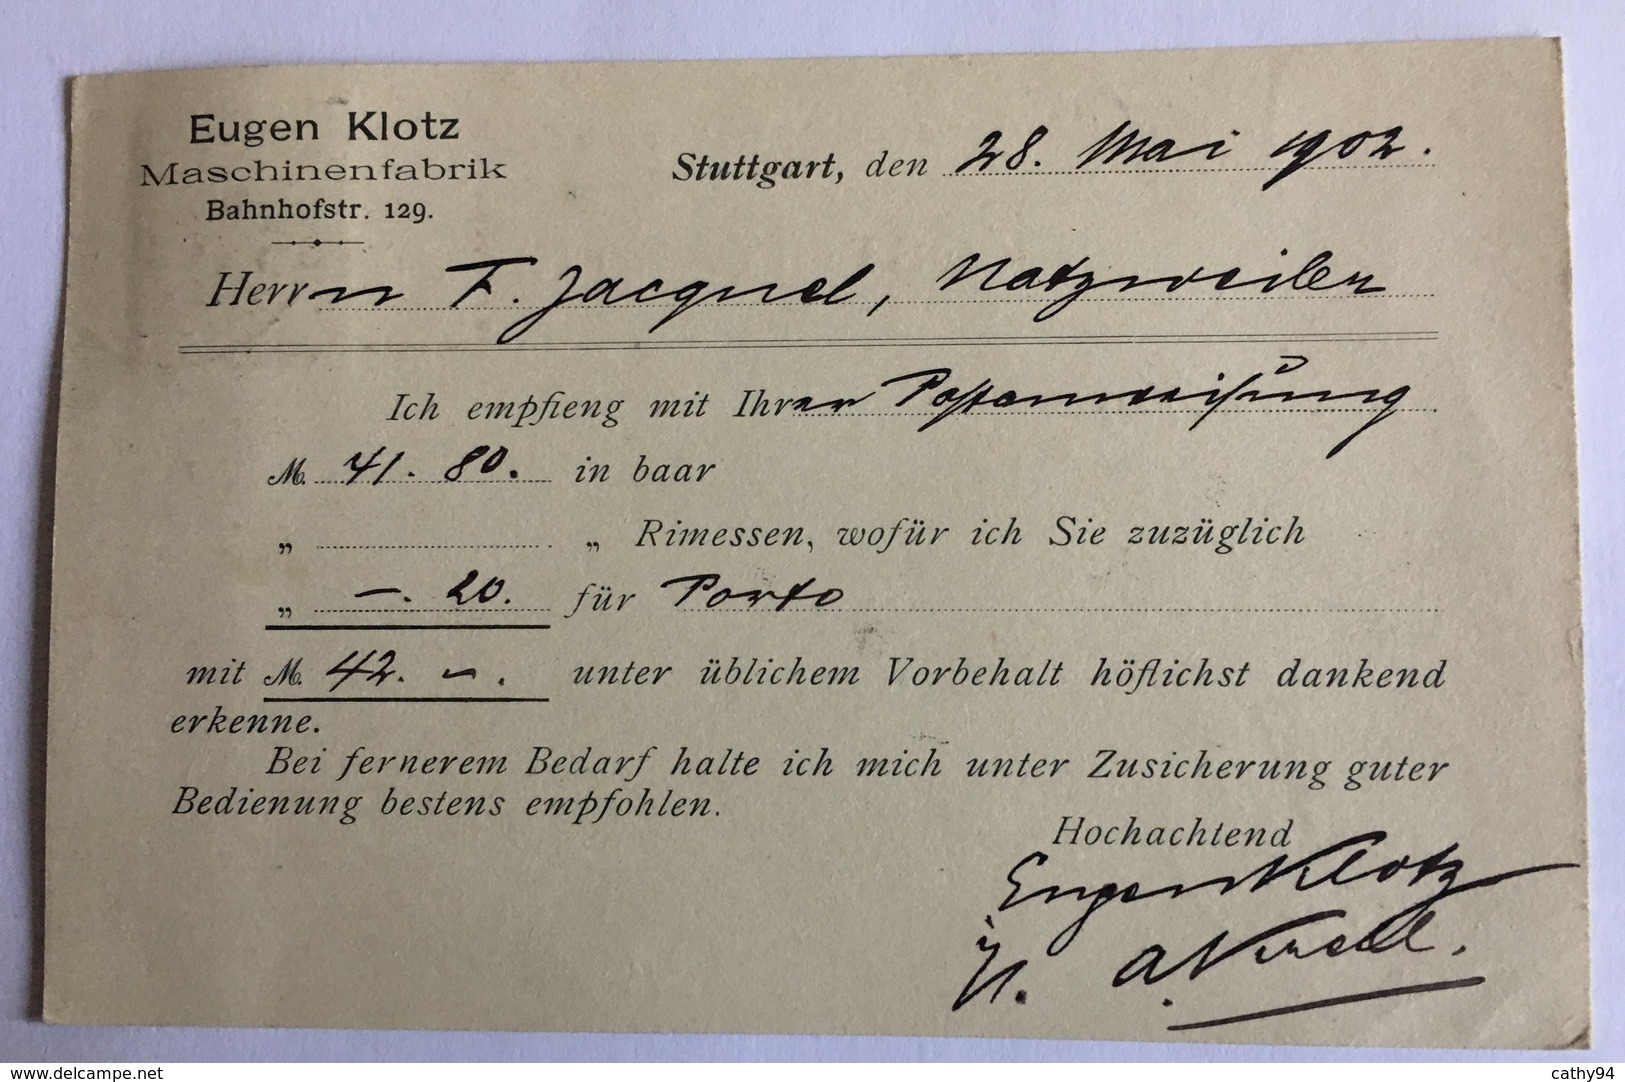 Eugen Klotz
Maschinenfabrik
Bahnhofstr. 129.
Stuttgart, den 28. Mai 1902.
Herrn F. Jacquel, Natzweiler
Ich empfieng mit Ihrer Postanweisung
M. 41. 80. in baar
„ „ Rimessen, wofür ich Sie zuzüglich
„ —. 20. für Porto
mit M. 42. —. unter üblichem Vorbehalt höflichst dankend
erkenne.
Bei fernerem Bedarf halte ich mich unter Zusicherung guter
Bedienung bestens empfohlen.
Hochachtend
Eugen Klotz
A.
www.delcampe.net
cathy94